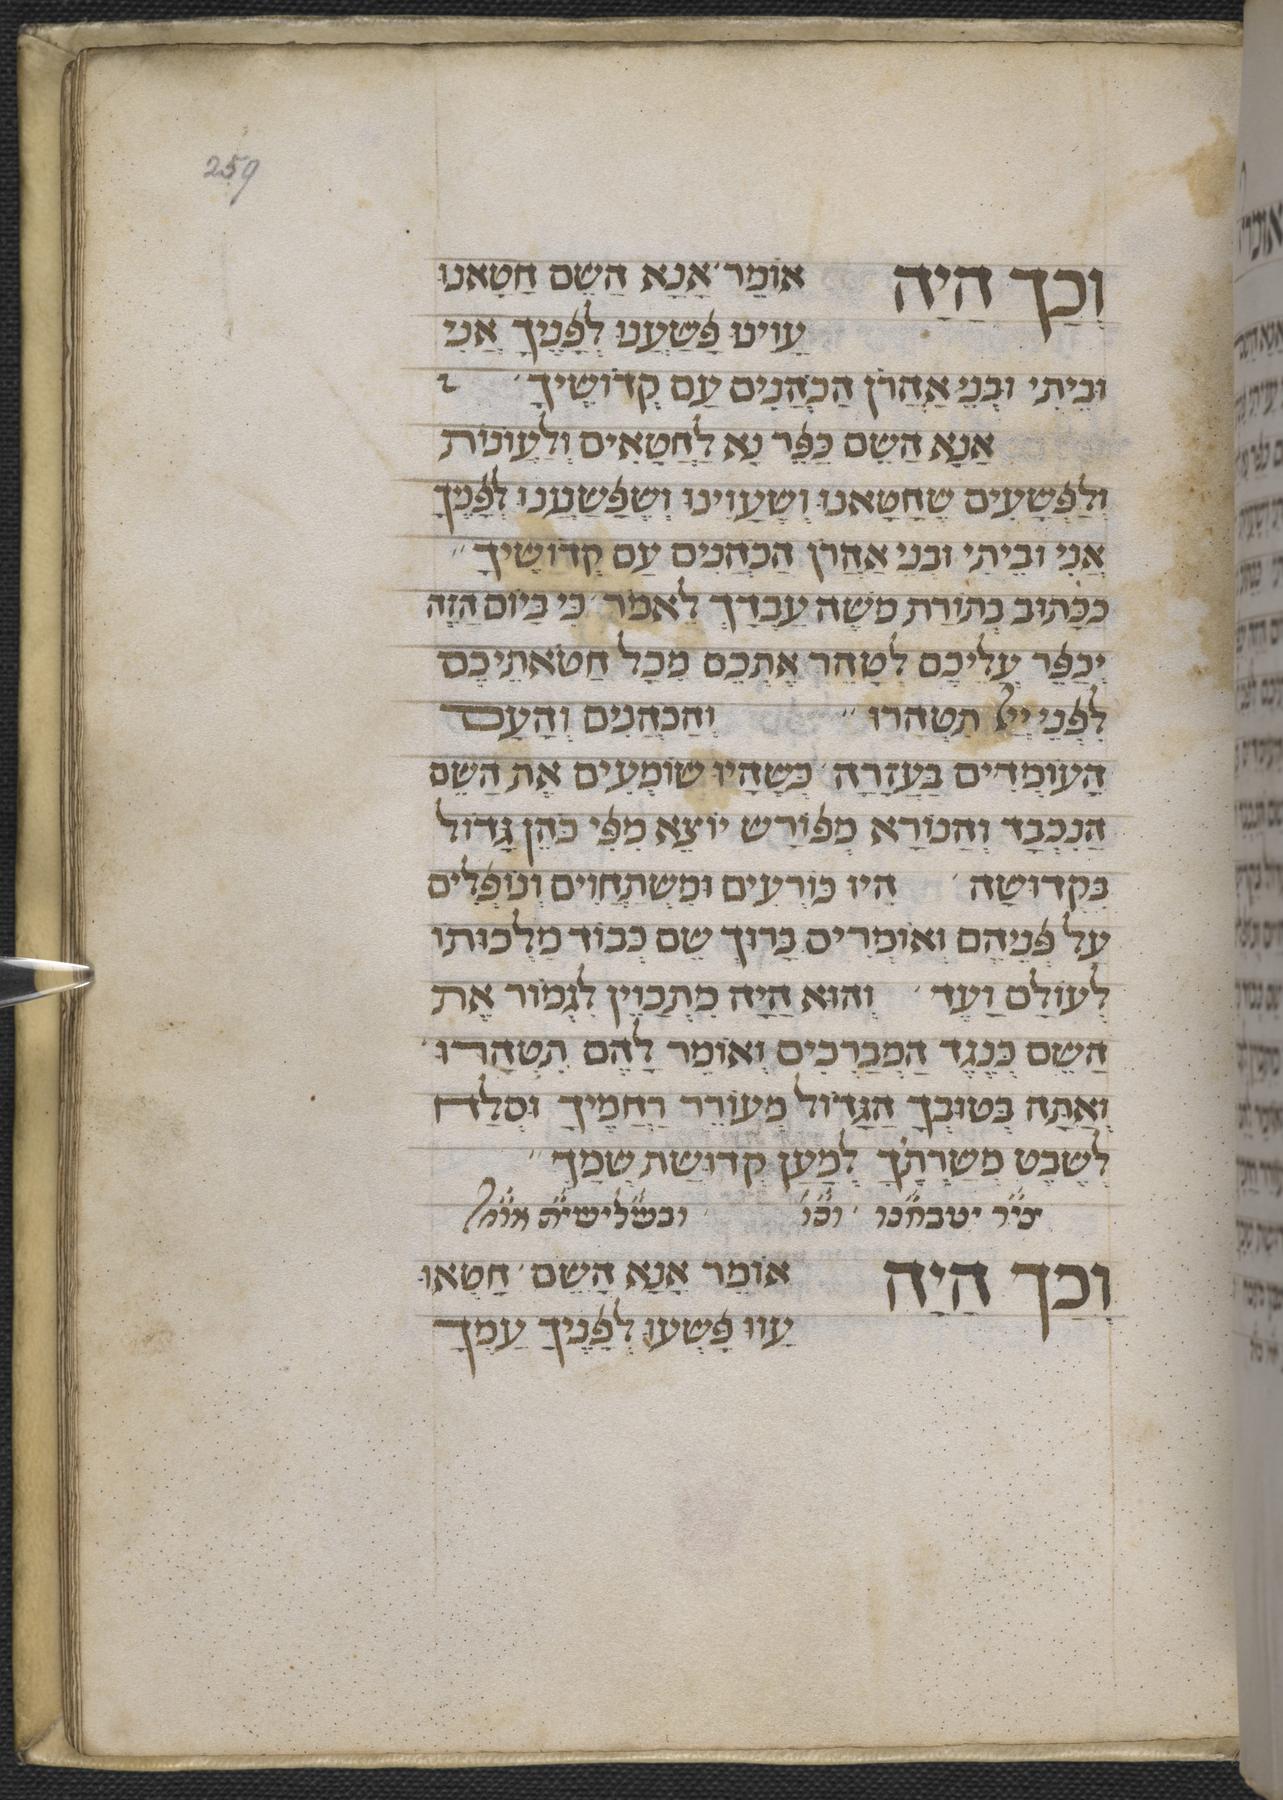 259
וְכַךְ הָיָה אוֹמֵר׳ אָנָא הַשֵׁם חָטָאנוּ
עָוִינוּ פָּשַׁעְנוּ לְפָנֶיךָ אֲנִי
וּבֵיתִי וּבְנֵי אַהֲרֹן הַכֹּהֲנִים עַם קְדוֹשֶׁיךָ׳
אָנָא הַשֵׁם כַּפֵּר נָא לַחֲטָאִים וְלַעֲוֹנוֹת
וְלַפְּשָׁעִים שֶׁחָטָאנוּ וְשֶׁעָוִינוּ וְשֶׁפָּשַׁעְנוּ לְפָנֶיךָ
אֲנִי וּבֵיתִי וּבְנֵי אַהֲרֹן הַכֹּהֲנִים עַם קְדוֹשֶׁיךָ״
כַּכָּתוּב בְּתוֹרַת מֹשֶׁה עַבְדְּךָ לֵאמֹר׳ כִּי בַיּוֹם הַזֶּה
יְכַפֵּר עֲלֵיכֶם לְטַהֵר אֶתְכֶם מִכָּל חַטֹּאתֵיכֶם
לִפְנֵי תִטְהָרוּ״ וְהַכֹּהֲנִים וְהָעָם
הָעוֹמְדִים בָּעֲזָרָה׳ כְּשֶׁהָיוּ שׁוֹמְעִים אֶת הַשֵׁם
הַנִּכְבָּד וְהַנּוֹרָא מְפוֹרָשׁ יוֹצֵא מִפִּי כֹּהֵן גָּדוֹל
בִּקְדוּשָׁה׳ הָיוּ כּוֹרְעִים וּמִשְׁתַּחֲוִים וְנוֹפְלִים
עַל פְּנֵיהֶם וְאוֹמְרִים בָּרוּךְ שֵׁם כְּבוֹד מַלְכוּתוֹ
לְעוֹלָם וָעֶד׳ וְהוּא הָיָה מִתְכַּוֵין לִגְמוֹר אֶת
הַשֵׁם כְּנֶגֶד הַמְבָרְכִים וְאוֹמֵר לָהֶם תִּטְהָרוּ׳
וְאַתָּה בְּטוּבְךָ הַגָּדוֹל מְעוֹרֵר רַחֲמֶיךָ וְסֹלֵחַ
לְשֵׁבֶט מְשָׁרְתֶךָ לְמַעַן קְדוּשַׁת שְׁמֶךָ״
ובשלישית
וְכַךְ הָיָה אוֹמֵר אָנָא הַשֵׁם׳ חָטְאוּ
עָווּ פָּשְׁעוּ לְפָנֶיךָ עַמְּךָ